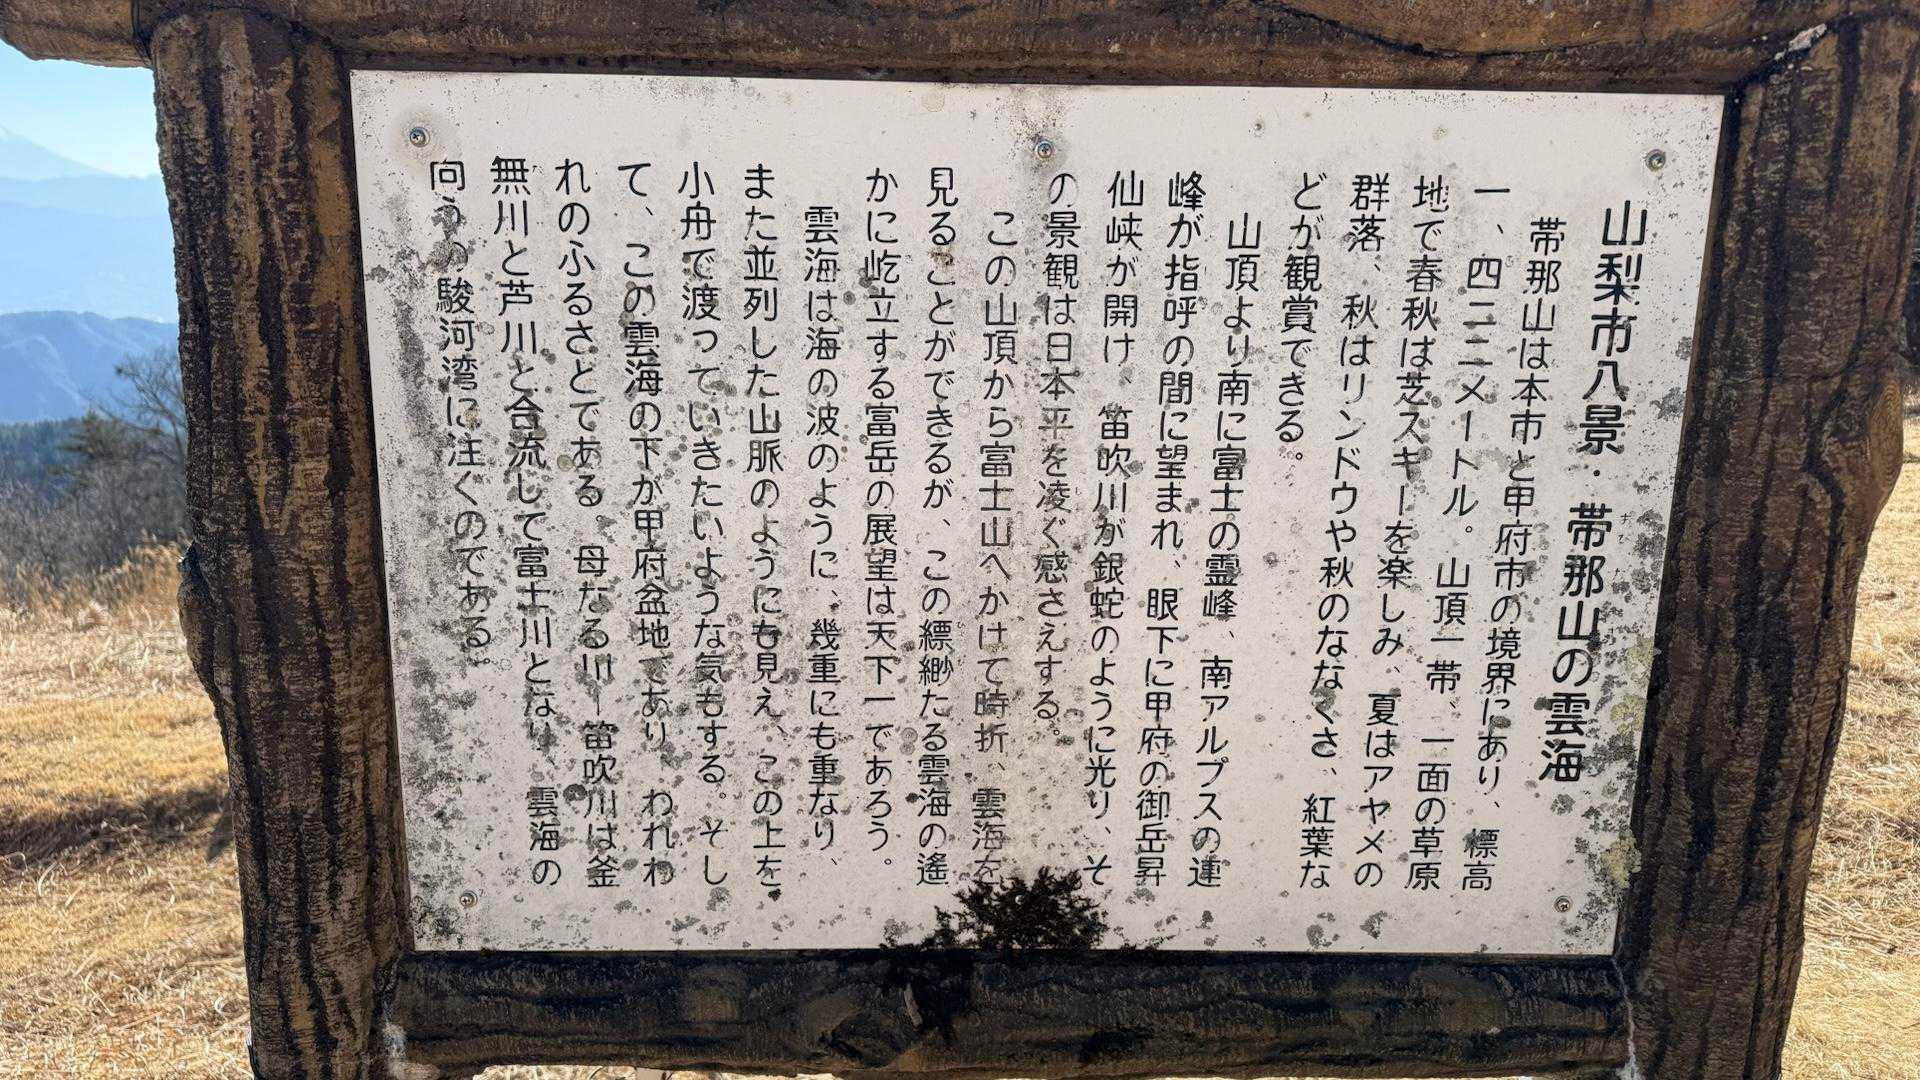 山梨市八景・帯那山の雲海
帯那山は本市と甲府市の境界にあり、標高
一、四二二メートル。山頂一帯、一面の草原
地で春秋は芝スキーを楽しみ、夏はアヤメの
群落、秋はリンドウや秋のななくさ、紅葉な
どが観賞できる。
山頂より南に富士の霊峰、南アルプスの連
峰が指呼の間に望まれ、眼下に甲府の御岳昇
仙峡が開け、笛吹川が銀蛇のように光り、そ
の景観は日本平を凌ぐ感さえする。
この山頂から富士山へかけて時折、雲海を
見ることができるが、この縹緲たる雲海の遙
かに屹立する富岳の展望は天下一であろう。
雲海は海の波のように、幾重にも重なり、
また並列した山脈のようにも見え、この上を
小舟で渡っていきたいような気もする。そし
て、この雲海の下が甲府盆地であり、われわ
れのふるさとである。母なる川－笛吹川は釜
無川と芦川と合流して富士川となり、雲海の
向うの駿河湾に注ぐのである。